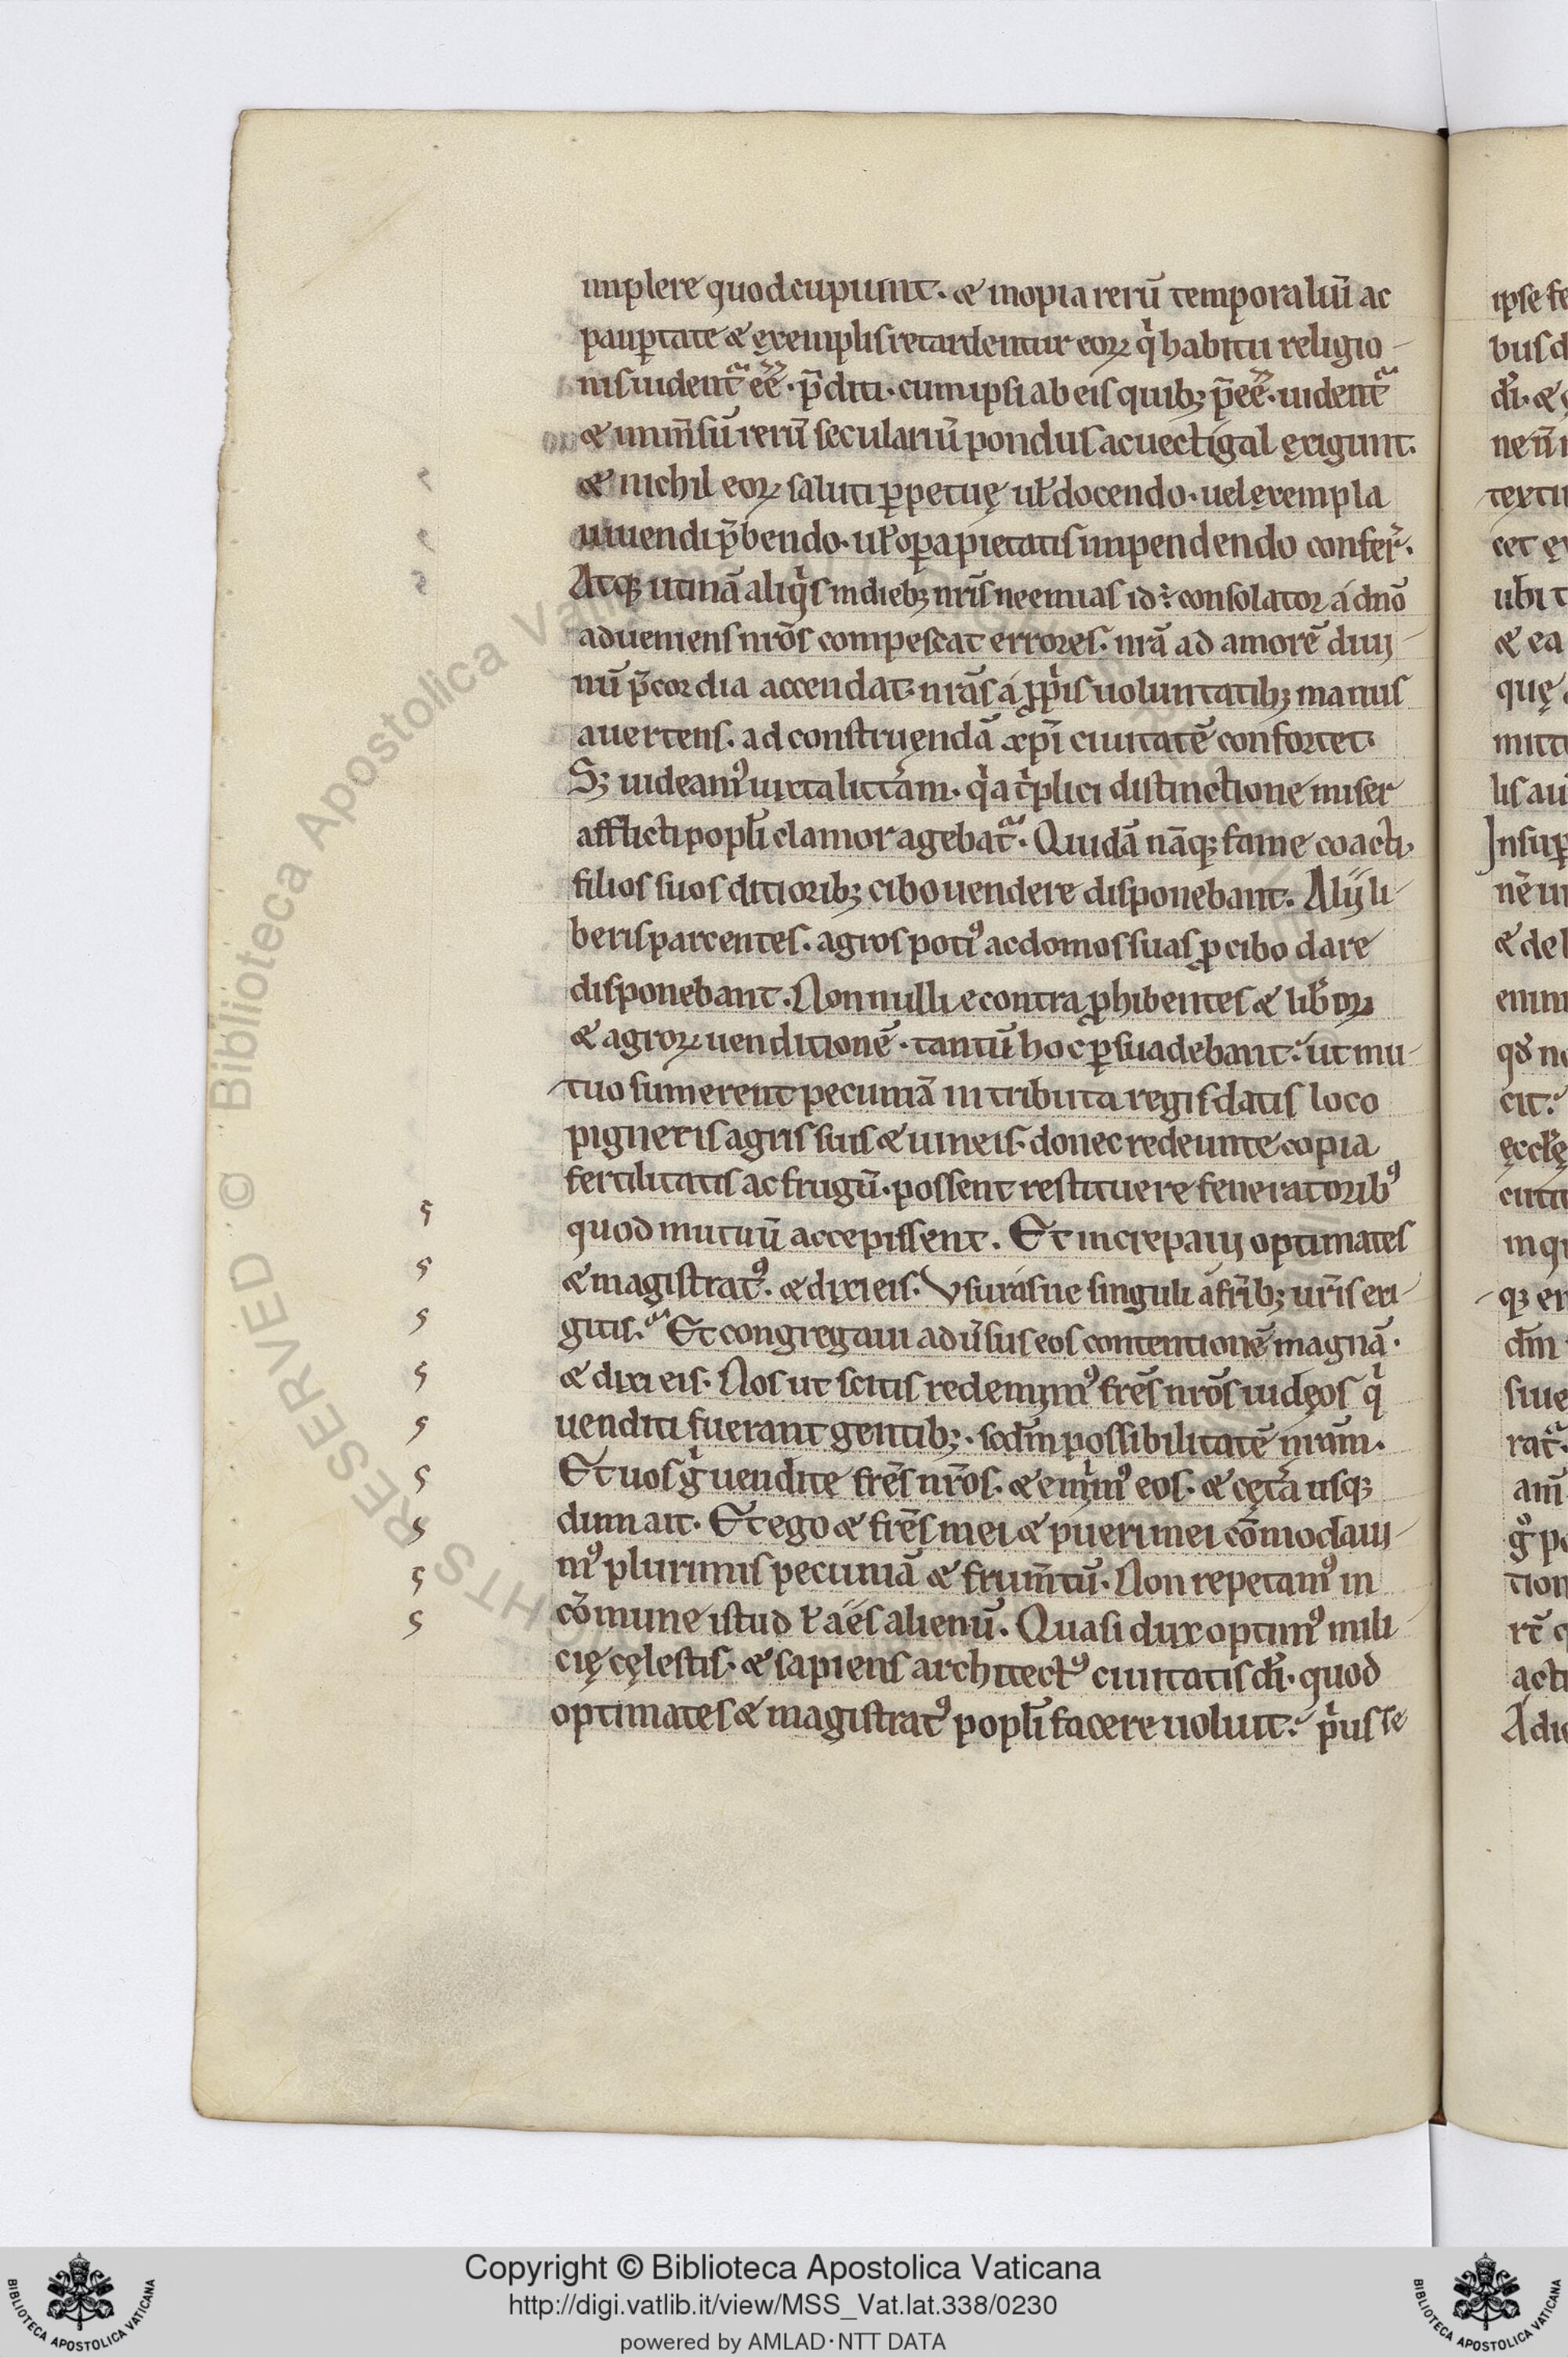 implere quod cupiunt. & inopia rerū temporaliū ac
paup̱tate & ęxemplis retardentur eoꝝ qͥ habitu religio-
nis uident᷑ ēē. p̄diti. cum ipsi ab eis quibꝫ p̄ēē. uident᷑
& inm̄sū rerū seculariū pondus ac uectigal ęxigunt.
& nichil eoꝝ saluti ꝑpetuę uł docendo. uel ęxempla
uiuendi p̄bendo. uł oꝑa pietatis impendendo confer̄.
Atqꝫ utinā aliqͥs in diebꝫ nr̄is neemias id ÷ consolator á dn̄o
adueniens nr̄os compescat errores. nr̄a ad amorē diui-
nū p̄cordia accendat. nr̄as á ꝓpͥis uoluntatibꝫ manus
auertens. ad construęndā xp̄i ciuitatē confortet.
Sꝫ uideamꝰ iuxta litt̄am. qͥa tͥplici distinctione miser
afflicti popł̄i clamor agebat᷑. Quidā nāqꝫ fame coacti,
filios suos ditioribꝫ cibo uendere disponebant. Alij li-
beris parcentes. agros potiꝰ ac domos suas ꝓ cibo dare
disponebant. Non nulli econtra ꝓhibentes & lib̄oꝝ
& agroꝝ uenditionē. tantū hoc ꝑsuadebant. ut mu-
tuo sumerent pecuniā in tributa regis datis loco
pigneris agris suis & uineis. donec redeunte copia
fertilitatis ac frugū. possent restituere feneratoribꝰ
quod mutuū accepissent. Et increpaui optimates
& magistratꝰ. & dixi eis. Vsurásne singuli á fr̄ibꝫ ur̄is exi-
gitis. Et congregaui adūsus eos contentionē magnā.
& dixi eis. Nos ut scitis redemimꝰ fr̄es nr̄os iudęos qͥ
uenditi fuerant gentibꝫ. scdm̄ possibilitatē nr̄am.
Et uos gͥ uendite fr̄es nr̄os. & emimꝰ eos. & cęt̄a usqꝫ
dum ait. Et ego & fr̄es mei & pueri mei cōmodaui-
mꝰ plurimis pecuniā & frum̄tū. Non repetamꝰ in
cōmune istud & aes alienū. Quasi dux optimꝰ mili-
cię cęlestis. & sapiens architectꝰ ciuitatis dī. quod
optimates & magistratꝰ popł̄i facere uoluit. pͥus se
Copyright © Biblioteca Apostolica Vaticana
http://digi.vatlib.it/view/MSS_Vat.lat.338/0230
powered by AMLAD·NTT DATA